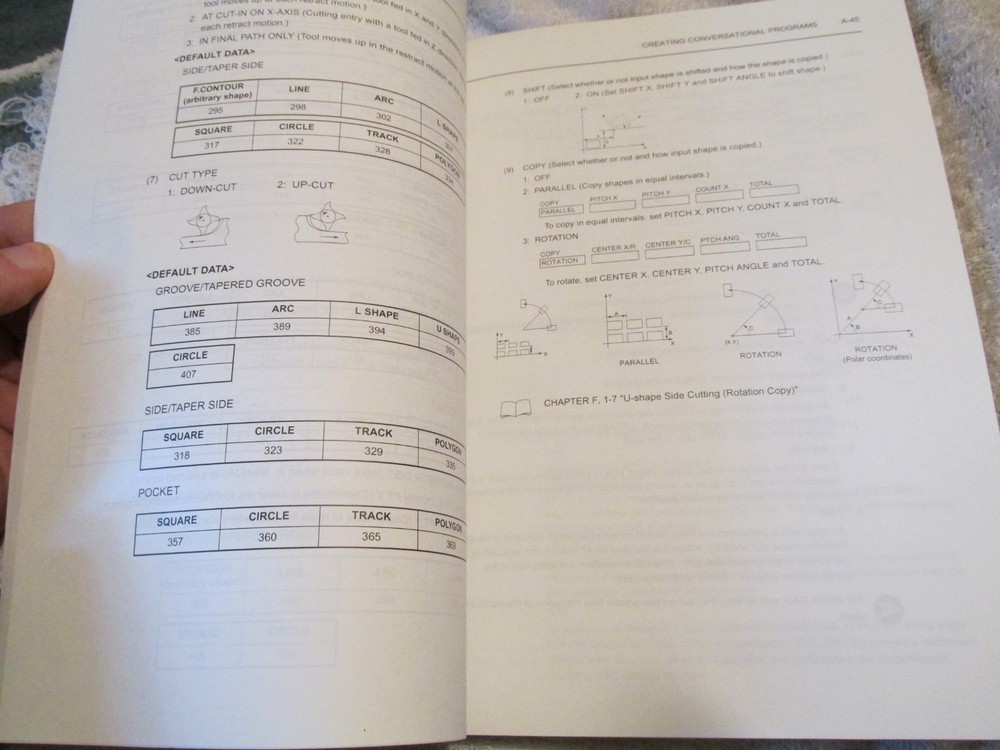 tool moves up at each retract motion.)
2: AT CUT-IN ON X-AXIS (Cutting entry with a tool fed in Z
each retract motion.)
3: IN FINAL PATH ONLY (Tool moves up in the restract motion
<DEFAULT DATA>
SIDE/TAPER SIDE
F.CONTOUR (arbitrary shape) LINE ARC L SHAPE
295 298 302
SQUARE CIRCLE TRACK POLYGON
317 322 328 334
(7) CUT TYPE
1: DOWN-CUT 2: UP-CUT
<DEFAULT DATA>
GROOVE/TAPERED GROOVE
LINE ARC L SHAPE U SHAPE
385 389 394 399
CIRCLE
407
SIDE/TAPER SIDE
SQUARE CIRCLE TRACK POLYGON
318 323 329 335
POCKET
SQUARE CIRCLE TRACK POLYGON
357 360 365 369
CREATING CONVERSATIONAL PROGRAMS A-45
(8) SHIFT (Select whether or not input shape is shifted and how the shape is copied.)
1: OFF 2: ON (Set SHIFT X, SHIFT Y and SHIFT ANGLE to shift shape.)
(9) COPY (Select whether or not and how input shape is copied.)
1: OFF
2: PARALLEL (Copy shapes in equal intervals.)
COPY PITCH X PITCH Y COUNT X TOTAL
PARALLEL
To copy in equal intervals, set PITCH X, PITCH Y, COUNT X and TOTAL.
3: ROTATION
COPY CENTER X/R CENTER Y/C PTCH ANG TOTAL
ROTATION
To rotate, set CENTER X, CENTER Y, PITCH ANGLE and TOTAL.
Y X
Y A B X
PARALLEL
C (X,Y)
ROTATION
Y C A B X
ROTATION
(Polar coordinates)
CHAPTER F, 1-7 "U-shape Side Cutting (Rotation Copy)"